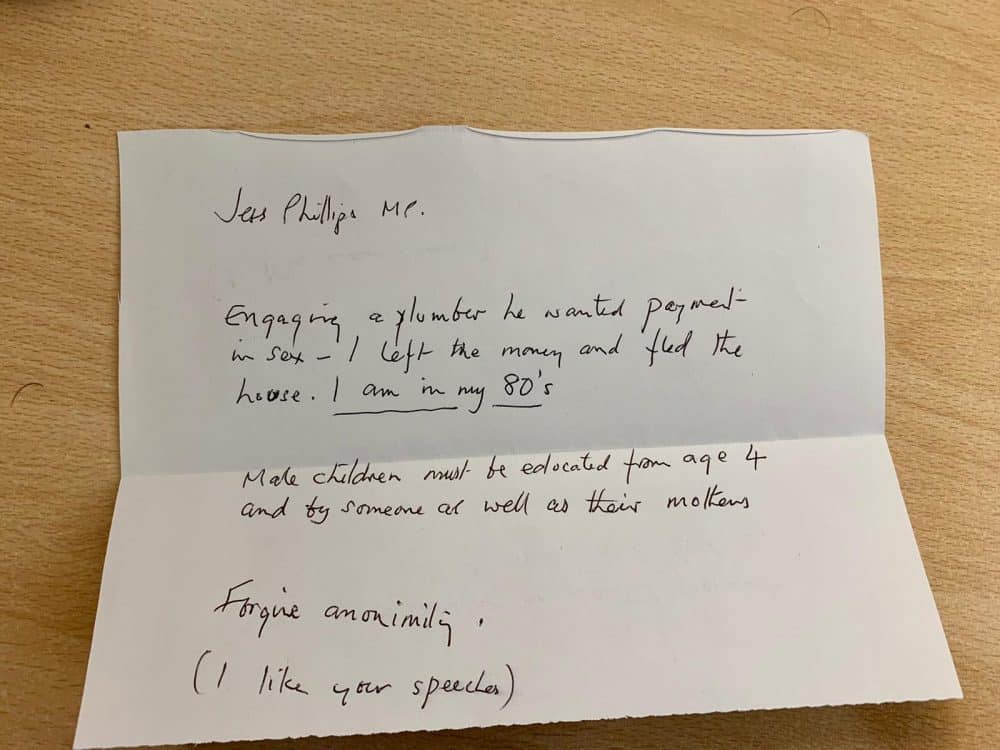 Jess Phillips MP.
Engaging a plumber he wanted payment
in sex – I left the money and fled the
house. I am in my 80's
Male children must be educated from age 4
and by someone as well as their mothers
Forgive anonimity.
(I like your speeches)